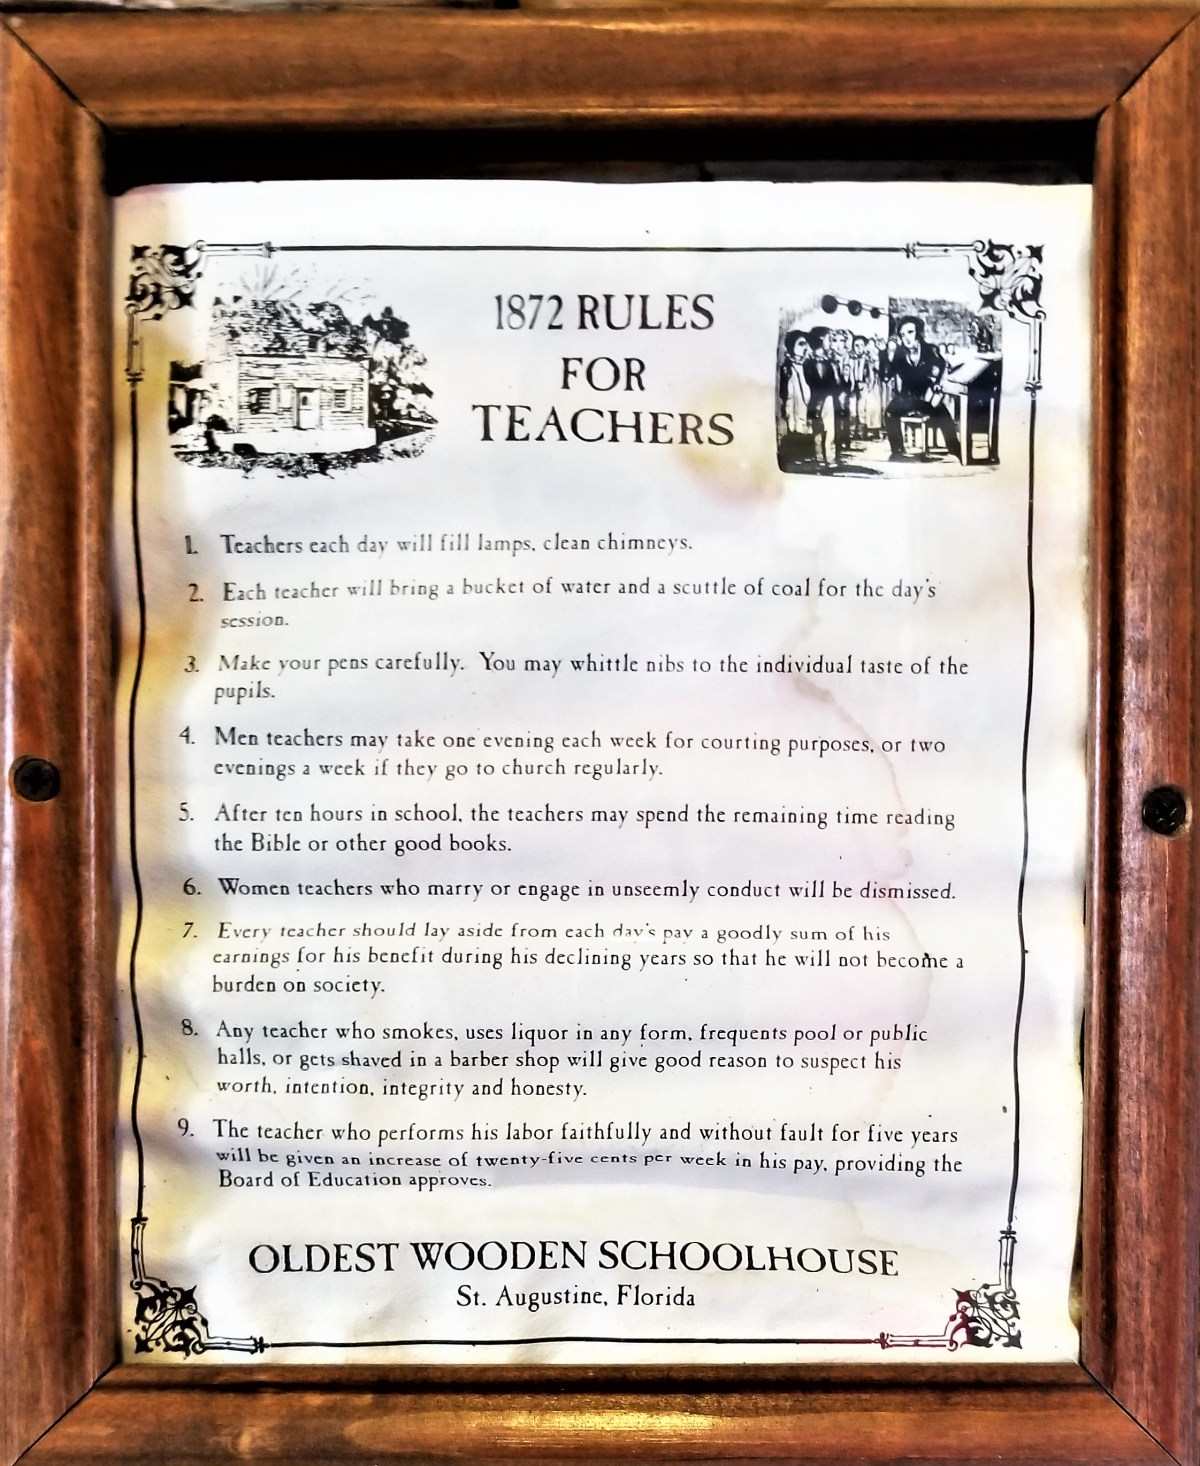 1872 RULES
FOR
TEACHERS
1. Teachers each day will fill lamps, clean chimneys.
2. Each teacher will bring a bucket of water and a scuttle of coal for the day's
session.
3. Make your pens carefully. You may whittle nibs to the individual taste of the
pupils.
4. Men teachers may take one evening each week for courting purposes, or two
evenings a week if they go to church regularly.
5. After ten hours in school, the teachers may spend the remaining time reading
the Bible or other good books.
6. Women teachers who marry or engage in unseemly conduct will be dismissed.
7. Every teacher should lay aside from each day's pay a goodly sum of his
earnings for his benefit during his declining years so that he will not become a
burden on society.
8. Any teacher who smokes, uses liquor in any form, frequents pool or public
halls, or gets shaved in a barber shop will give good reason to suspect his
worth, intention, integrity and honesty.
9. The teacher who performs his labor faithfully and without fault for five years
will be given an increase of twenty-five cents per week in his pay, providing the
Board of Education approves.
OLDEST WOODEN SCHOOLHOUSE
St. Augustine, Florida